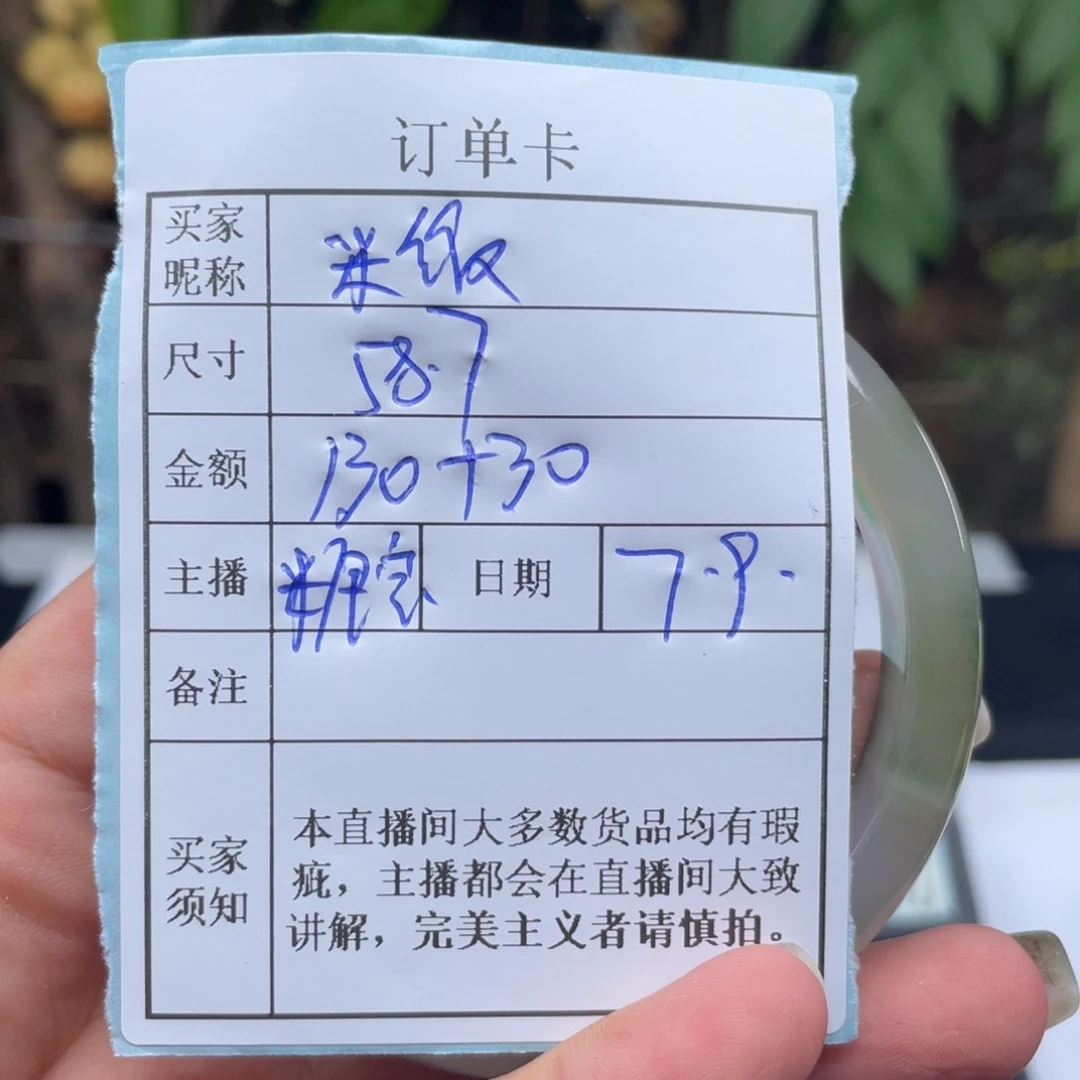 订单卡
买家
昵称
米级
尺寸
58.7
金额
130+30
主播
糖宝
日期
7.9.
备注
买家
须知
本直播间大多数货品均有瑕
疵，主播都会在直播间大致
讲解，完美主义者请慎拍。